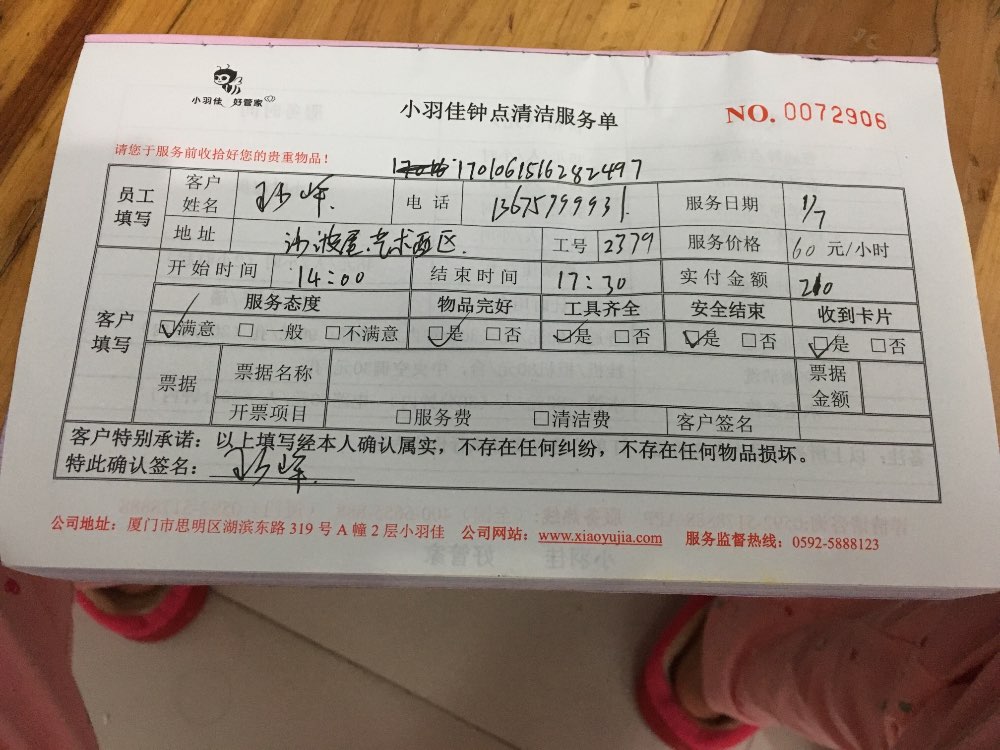 小羽佳 好管家
小羽佳钟点清洁服务单
NO. 0072906
请您于服务前收拾好您的贵重物品！
1701061516282497
员工填写 客户姓名 电话 13675799931. 服务日期 1/7
地址 沙波尾.艺术西区. 工号 2379 服务价格 60 元/小时
客户填写 开始时间 14:00 结束时间 17:30 实付金额 210
服务态度 物品完好 工具齐全 安全结束 收到卡片
☑满意 □一般 □不满意 ☑是 □否 ☑是 □否 ☑是 □否 ☑是 □否
票据 票据名称 票据金额
开票项目 □服务费 □清洁费 客户签名
客户特别承诺：以上填写经本人确认属实，不存在任何纠纷，不存在任何物品损坏。
特此确认签名：
公司地址：厦门市思明区湖滨东路 319 号 A 幢 2 层小羽佳 公司网站：www.xiaoyujia.com 服务监督热线：0592-5888123